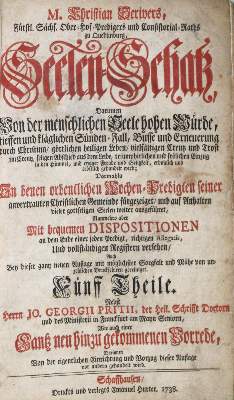 M. Christian Scrivers,
Fürstl. Sächs. Ober-Hof-Predigers und Consistorial-Raths
zu Quedlinburg,
Seelen-Schatz,
Darinnen
Von der menschlichen Seele hohen Würde,
tieffen und kläglichen Sünden-Fall, Busse und Erneuerung
durch Christum, göttlichen heiligen Leben, vielfältigen Creutz und Trost
im Creutz, seligen Abschied aus dem Leibe, triumphirlichen und frölichen Einzug
in den Himmel, und ewiger Freude und Seligkeit, erbaulich und
tröstlich gehandelt wird;
Vormahls
In denen ordentlichen Wochen-Predigten seiner
anvertrauten Christlichen Gemeinde fürgezeiget, und auf Anhalten
vieler gottseligen Seelen weiter ausgeführet,
Nunmehro aber
Mit bequemen DISPOSITIONEN
an dem Ende einer jeden Predigt, richtigen
Und vollständigen Registern versehen,
Auch
Bey dieser gantz neuen Auflage mit möglichster Sorgfalt und Mühe von
gereiniget.
Fünf Theile.
Nebst
Herrn JO. GEORGII PRITII, der Heil. Schrifft Doctorn
und des Ministerii in Franckfurt am Mayn Senioris,
Wie auch einer
Gantz neu hinzu gekommenen Vorrede,
Darinnen
Von der eigentlichen Einrichtung und Vorzug dieser Auflage
vor andern gehandelt wird.
Schaffhausen,
Druckts und verlegts Emanuel Hurter, 1738.